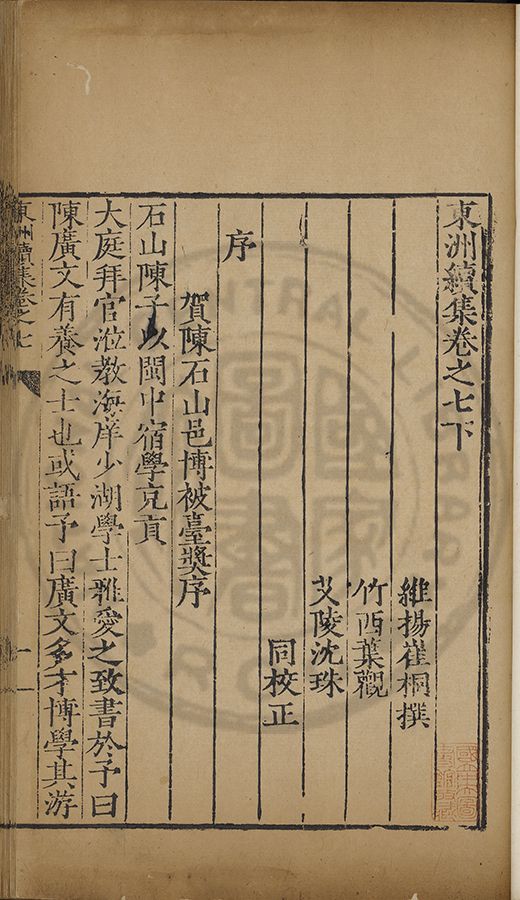 東洲續集卷之七下
維揚崔桐撰
竹西葉觀
艾陵沈珠
同校正
序
賀陳石山邑博被臺獎序
石山陳子以閩中宿學克貢
大庭拜官涖教海庠少湖學士雅愛之致書於予曰
陳廣文有養之士也或語予曰廣文多才博學其游
東洲續集卷之七